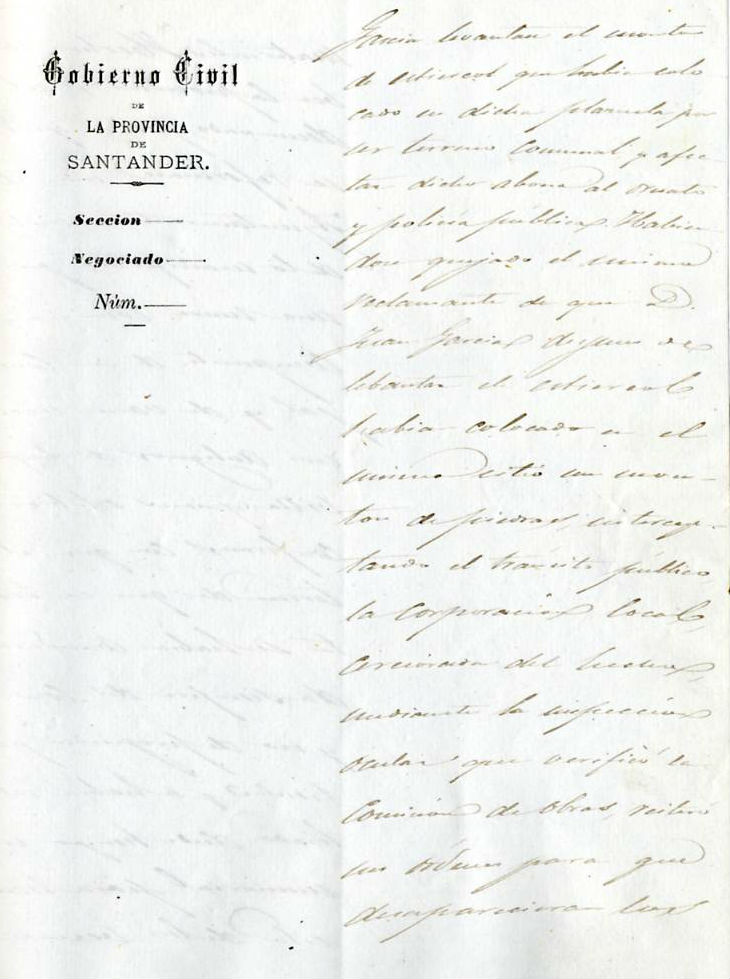 Gobierno Civil
DE
LA PROVINCIA
DE
SANTANDER.
Seccion
Negociado
Núm.
Garcia levantar el monton
de estiercol que habia colo
cado en dicha plazuela por
ser terreno comunal y afec
tar dicho abono al ornato
y policia pública. Habien
dose quejado el mismo
reclamante de que D.
Juan Garcia despues de
lebantar el estiercol
habia colocado en el
mismo sitio un mon-
ton de piedras, intercep-
tando el tránsito público
la corporacion local,
cerciorada del hecho,
mediante la inspeccion
ocular que verificó la
Comision de obras, reiteró
sus órdenes para que
desaparecieran las